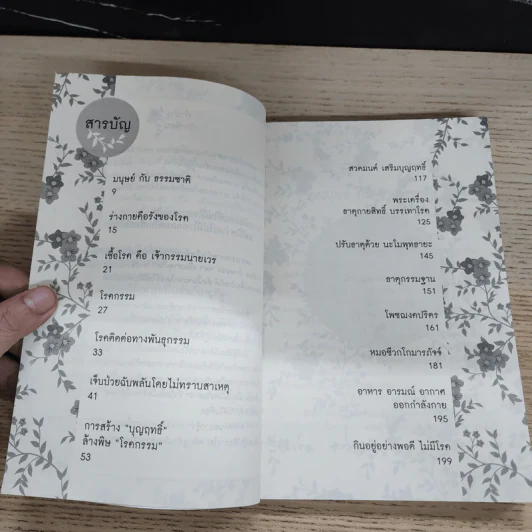 สารบัญ
มนุษย์ กับ ธรรมชาติ
9
ร่างกายคือรังของโรค
15
เชื้อโรค คือ เจ้ากรรมนายเวร
21
โรคกรรม
27
โรคติดต่อทางพันธุกรรม
33
เจ็บป่วยฉับพลันโดยไม่ทราบสาเหตุ
41
การสร้าง "บุญฤทธิ์"
ล้างพิษ "โรคกรรม"
53
สวดมนต์ เสริมบุญฤทธิ์
117
พระเครื่อง
ธาตุกายสิทธิ์ บรรเทาโรค
125
ปรับธาตุด้วย นะโมพุทธายะ
145
ธาตุกรรมฐาน
151
โพชฌงคปริตร
161
หมอชีวกโกมารภัจจ์
181
อาหาร อารมณ์ อากาศ
ออกกำลังกาย
195
กินอยู่อย่างพอดี ไม่มีโรค
199